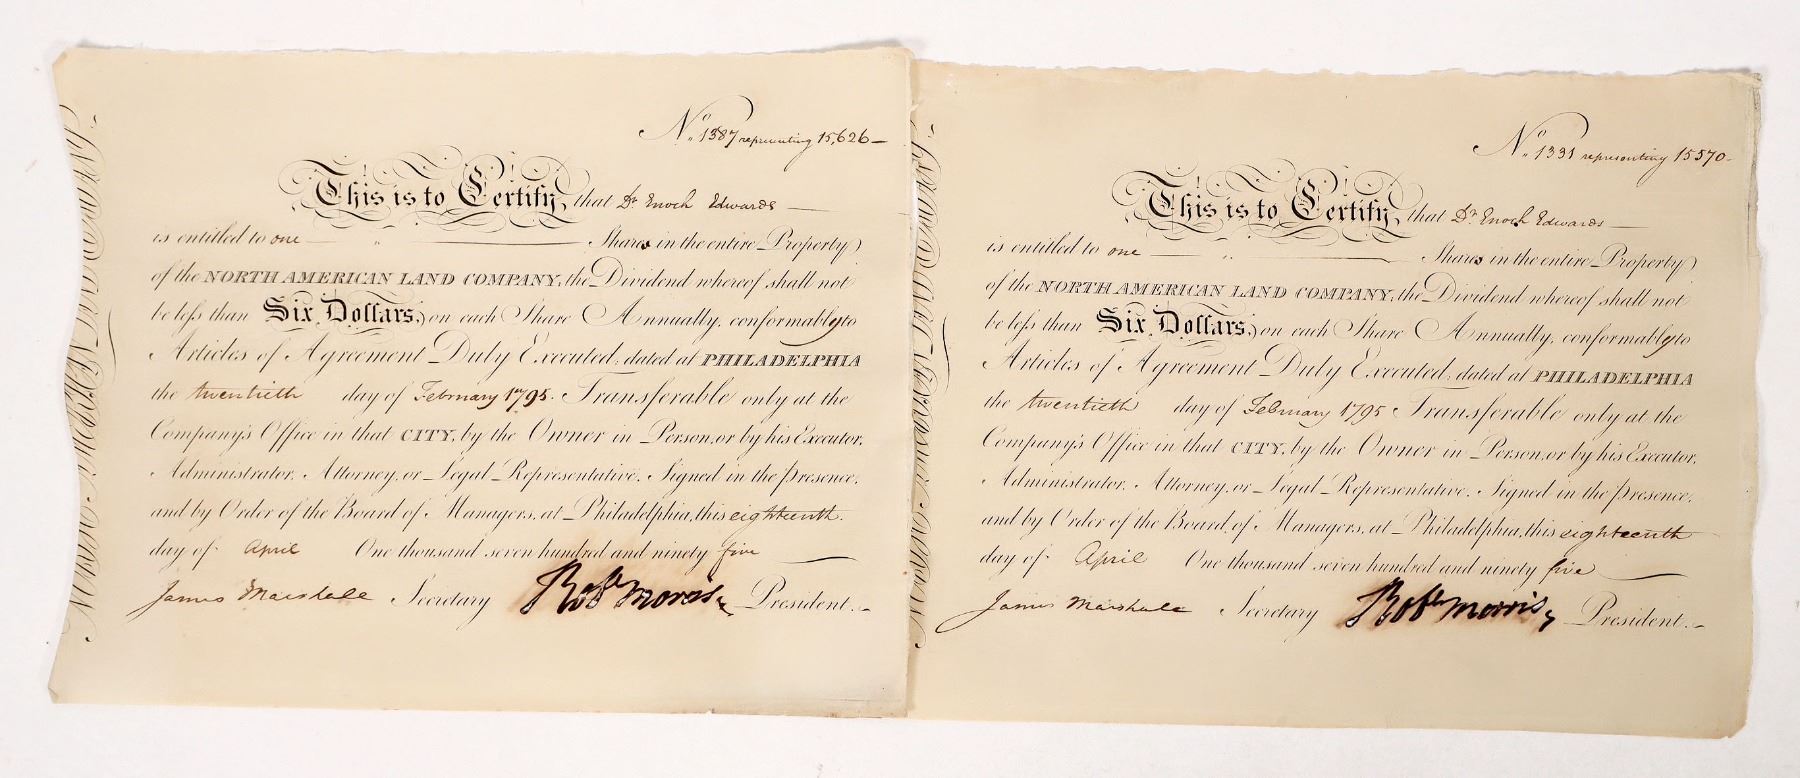 No. 1387 representing 15,626
This is to Certify, that Dr. Enoch Edwards
is entitled to one Share in the entire Property
of the NORTH AMERICAN LAND COMPANY, the Dividend whereof shall not
be less than Six Dollars, on each Share Annually, conformably to
Articles of Agreement Duly Executed, dated at PHILADELPHIA
the twentieth day of February 1795. Transferable only at the
Company's Office in that CITY, by the Owner in Person, or by his Executor,
Administrator, Attorney, or Legal Representative. Signed in the presence,
and by Order of the Board of Managers, at Philadelphia, this eighteenth
day of April One thousand seven hundred and ninety five
James Marshall Secretary Robt Morris President.
No. 1331 representing 15570
This is to Certify, that Dr. Enoch Edwards
is entitled to one Share in the entire Property
of the NORTH AMERICAN LAND COMPANY, the Dividend whereof shall not
be less than Six Dollars, on each Share Annually, conformably to
Articles of Agreement Duly Executed, dated at PHILADELPHIA
the twentieth day of February 1795 Transferable only at the
Company's Office in that CITY, by the Owner in Person, or by his Executor,
Administrator, Attorney, or Legal Representative. Signed in the presence,
and by Order of the Board of Managers, at Philadelphia, this eighteenth
day of April One thousand seven hundred and ninety five
James Marshall Secretary Robt Morris President.